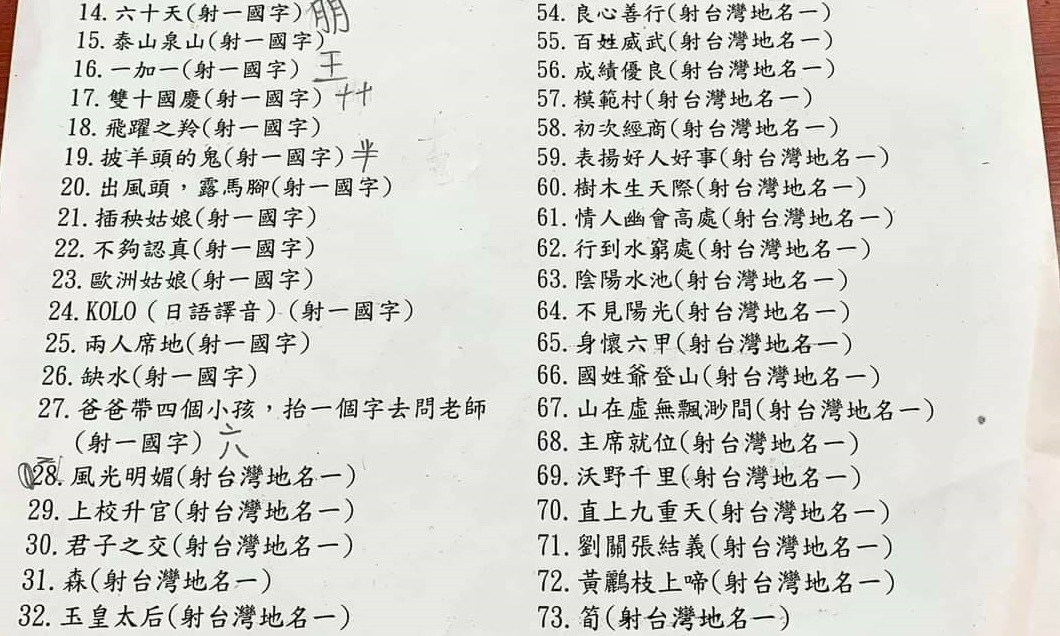 14. 六十天(射一國字) 朋
15. 泰山泉山(射一國字)
16. 一加一(射一國字) 王
17. 雙十國慶(射一國字) 艹
18. 飛躍之羚(射一國字)
19. 披羊頭的鬼(射一國字) 羋
20. 出風頭，露馬腳(射一國字)
21. 插秧姑娘(射一國字)
22. 不夠認真(射一國字)
23. 歐洲姑娘(射一國字)
24. KOLO（日語譯音）(射一國字)
25. 兩人席地(射一國字)
26. 缺水(射一國字)
27. 爸爸帶四個小孩，抬一個字去問老師
(射一國字) 六
28. 風光明媚(射台灣地名一)
29. 上校升官(射台灣地名一)
30. 君子之交(射台灣地名一)
31. 森(射台灣地名一)
32. 玉皇太后(射台灣地名一)
54. 良心善行(射台灣地名一)
55. 百姓威武(射台灣地名一)
56. 成績優良(射台灣地名一)
57. 模範村(射台灣地名一)
58. 初次經商(射台灣地名一)
59. 表揚好人好事(射台灣地名一)
60. 樹木生天際(射台灣地名一)
61. 情人幽會高處(射台灣地名一)
62. 行到水窮處(射台灣地名一)
63. 陰陽水池(射台灣地名一)
64. 不見陽光(射台灣地名一)
65. 身懷六甲(射台灣地名一)
66. 國姓爺登山(射台灣地名一)
67. 山在虛無飄渺間(射台灣地名一)
68. 主席就位(射台灣地名一)
69. 沃野千里(射台灣地名一)
70. 直上九重天(射台灣地名一)
71. 劉關張結義(射台灣地名一)
72. 黃鸝枝上啼(射台灣地名一)
73. 筍(射台灣地名一)